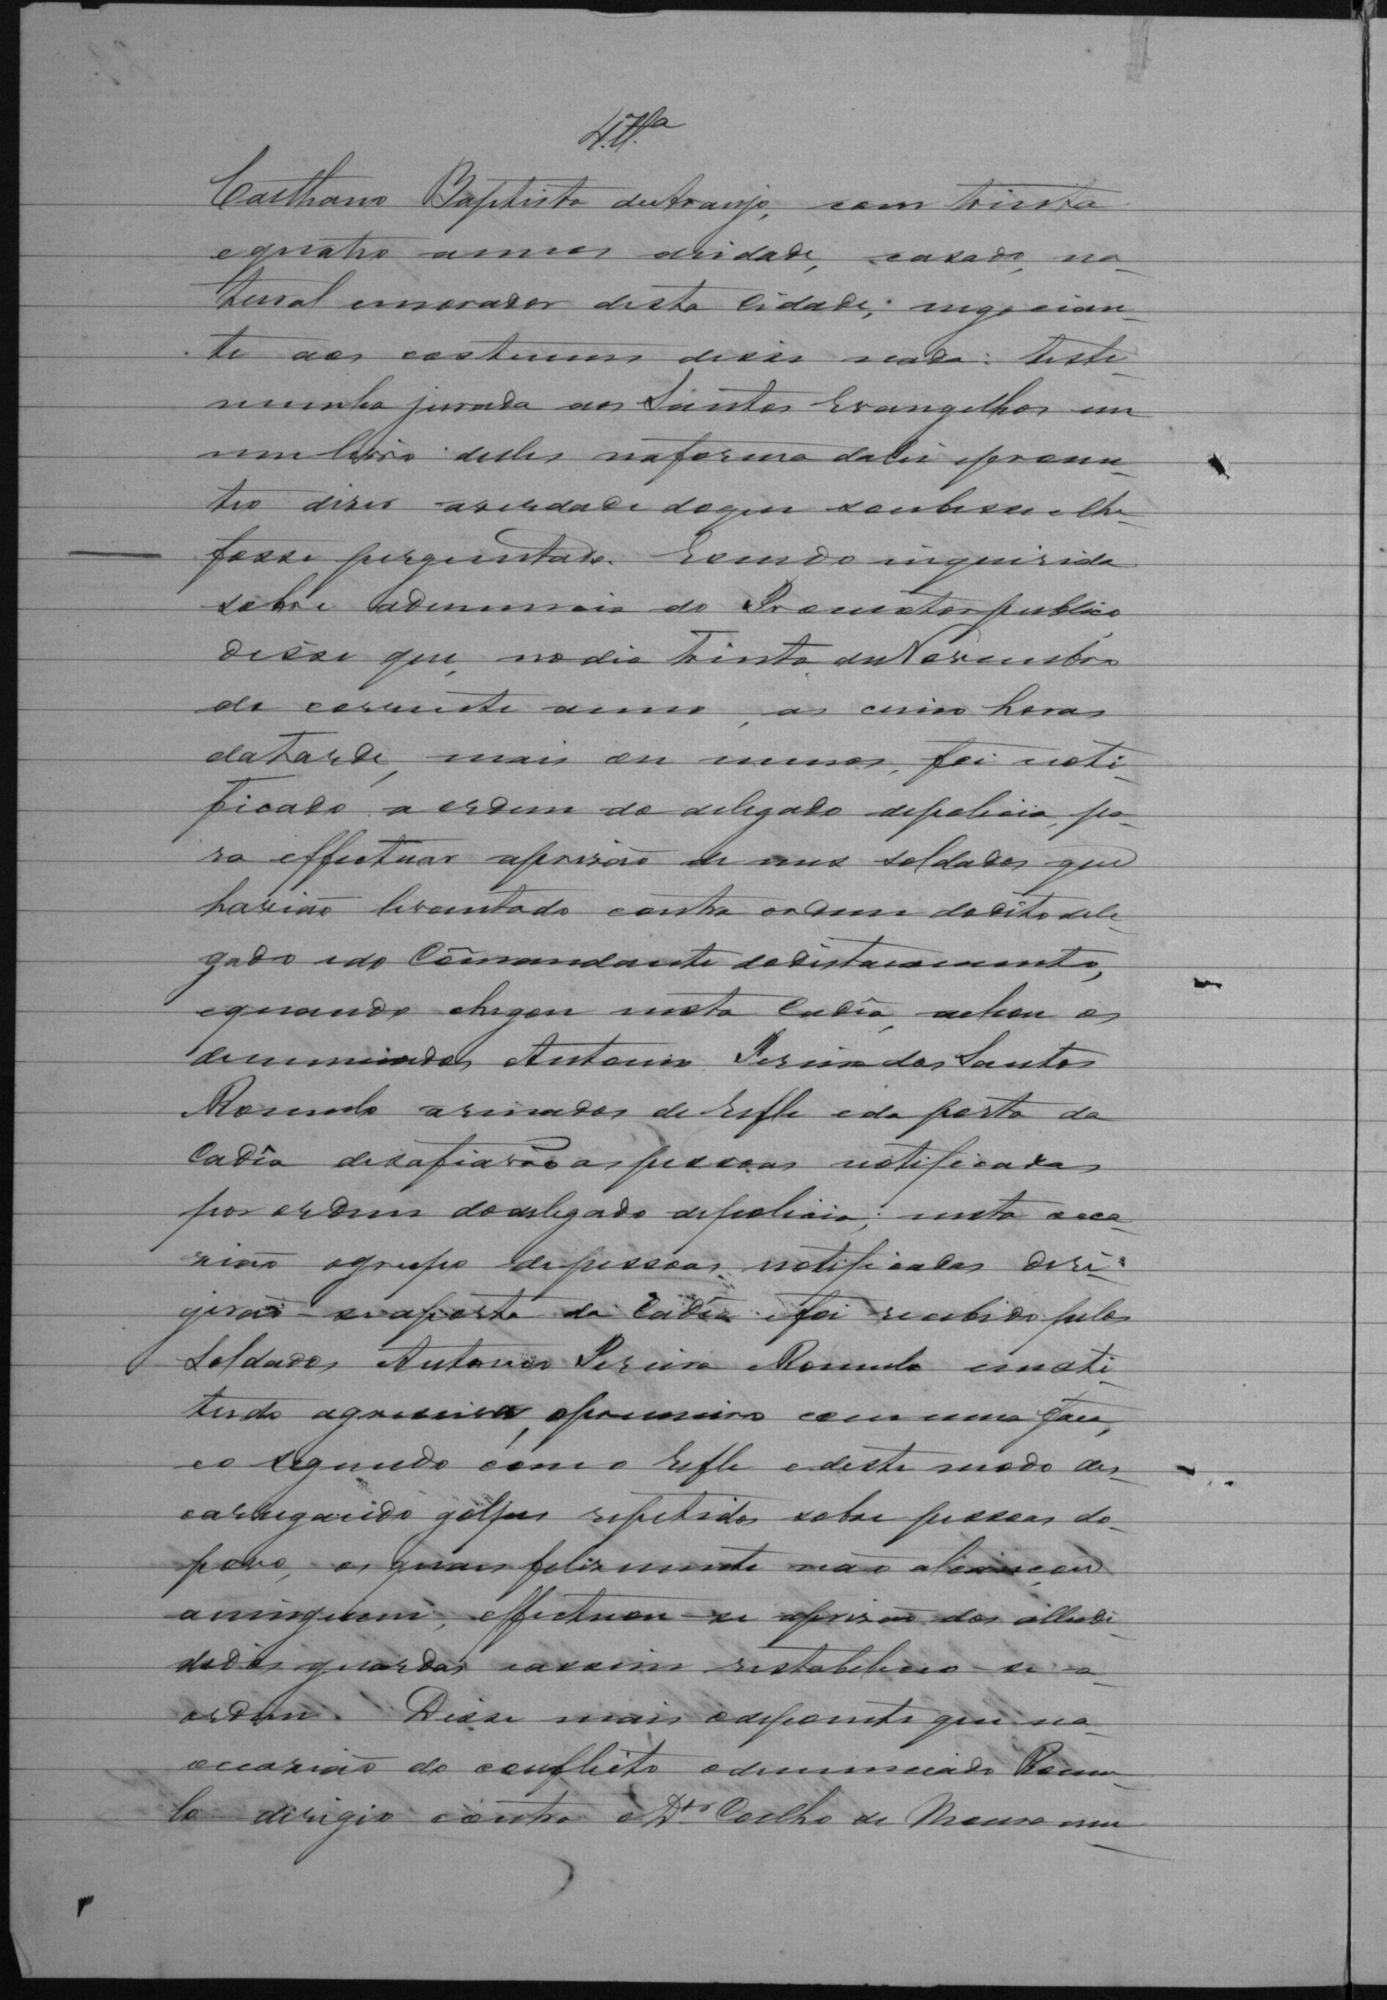 4.ª Tª
Casthano Baptista de Araujo, com trinta
e quatro annos deidade, casado, na-
tural emorador desta Cidade; negocian-
te aos costumes disse nada: teste-
munha jurada aos Santos Evangelhos em
um livro delles naforma dalei eprome-
teo diser averdade doque soubesse elhe
fosse perguntado. Esendo inquirida
sobre adenuncia do Promotor publico
disse que, nodia trinta de Novembro
do corrente anno, as cinco horas
datarde, mais ou menos, foi noti-
ficado a ordem do delegado depolicia, pa-
ra effectuar aprisão de uns soldados que
havião levantado contra ordem dodito dele-
gado edo Commandante dodestacamento,
equando chegou nesta Cadêa, achou os
denunciados Antonio Pereira dos Santos
Romulo armados de refle eda porta da
Cadêa desafiarão as pessoas notificadas
por ordem dodelegado depolicia; nesta occa-
sião ogrupo depessoas notificadas diri-
girão-se aporta da Cadêa efoi recebido pelos
Soldados Antonio Pereira Romulo
tindo agressiva, oprimeiro com uma faca,
eo segundo com o refle edeste modo des-
carregando golpes repetidos sobre pessoas do
povo, os quaes felismente não alcançou
aninguem, effectuou-se aprisão dos alludi-
didos guardas eassim restabeleceo-se a
ordem. Disse mais odepoente que na
occasião do conflicto odenunciado Romu-
lo dirigio contra o Dr. Coelho de Moura um